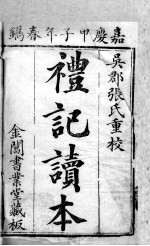 嘉慶甲子年春鐫
吳郡張氏重校
禮記讀本
金閶書業堂藏板